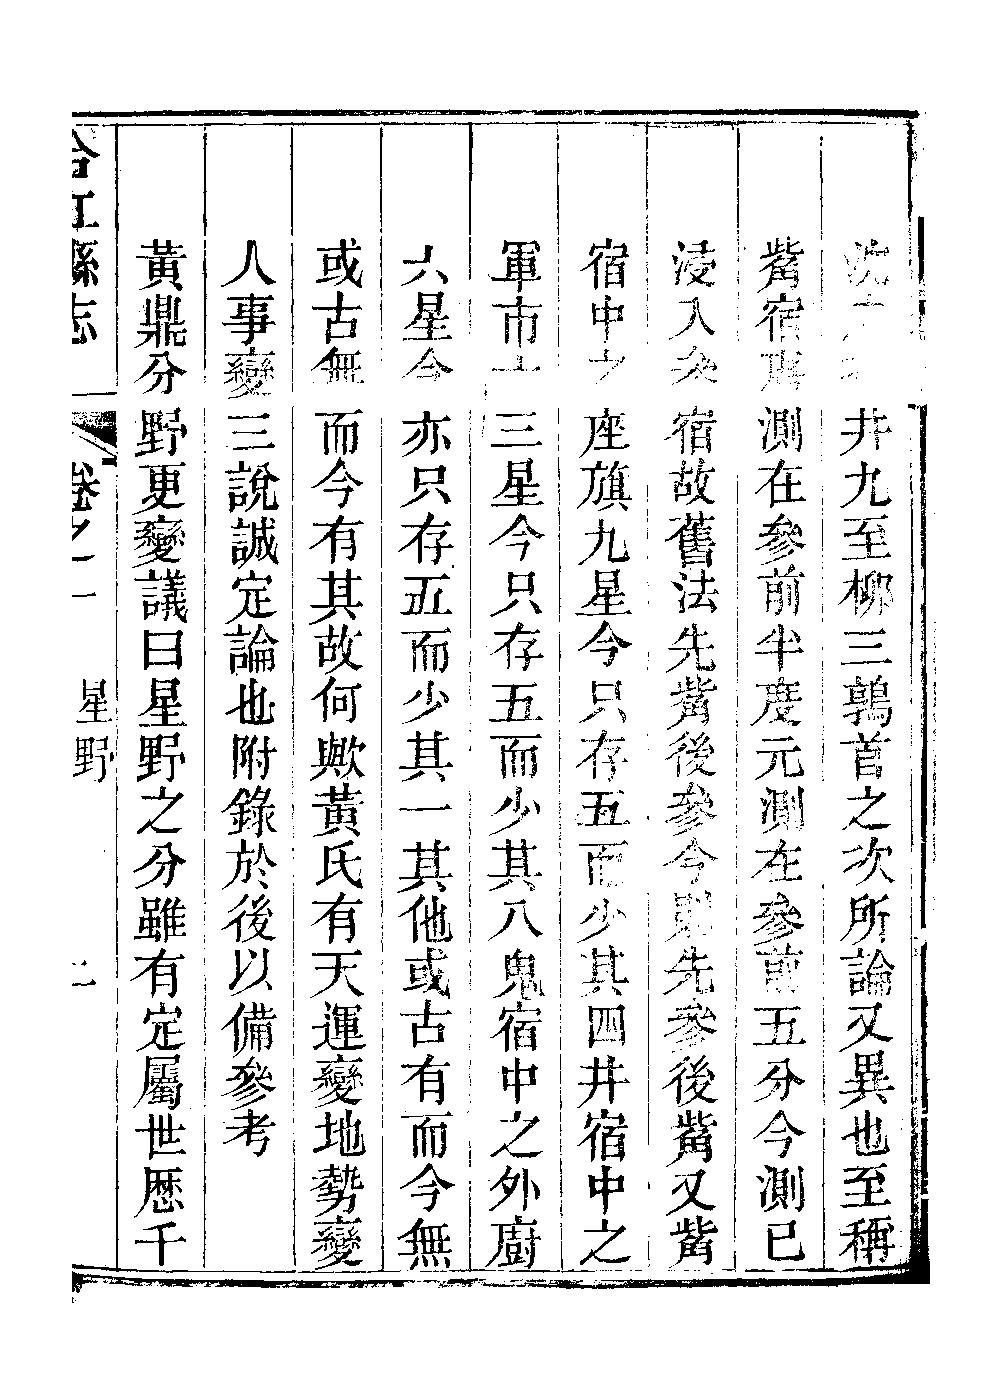 井九至柳三鶉首之次所論又異也至稱
觜宿唐測在參前半度元測在參前五分今測已
浸入參宿故舊法先觜後參今則先參後觜又觜
宿中之座旗九星今只存五而少其四井宿中之
軍市十三星今只存五而少其八鬼宿中之外廚
六星今亦只存五而少其一其他或古有而今無
或古無而今有其故何歟黃氏有天運變地勢變
人事變三說誠定論也附錄於後以備參考
黃鼎分野更變議曰星野之分雖有定屬世厯千
合江縣志 卷之一 星野 二